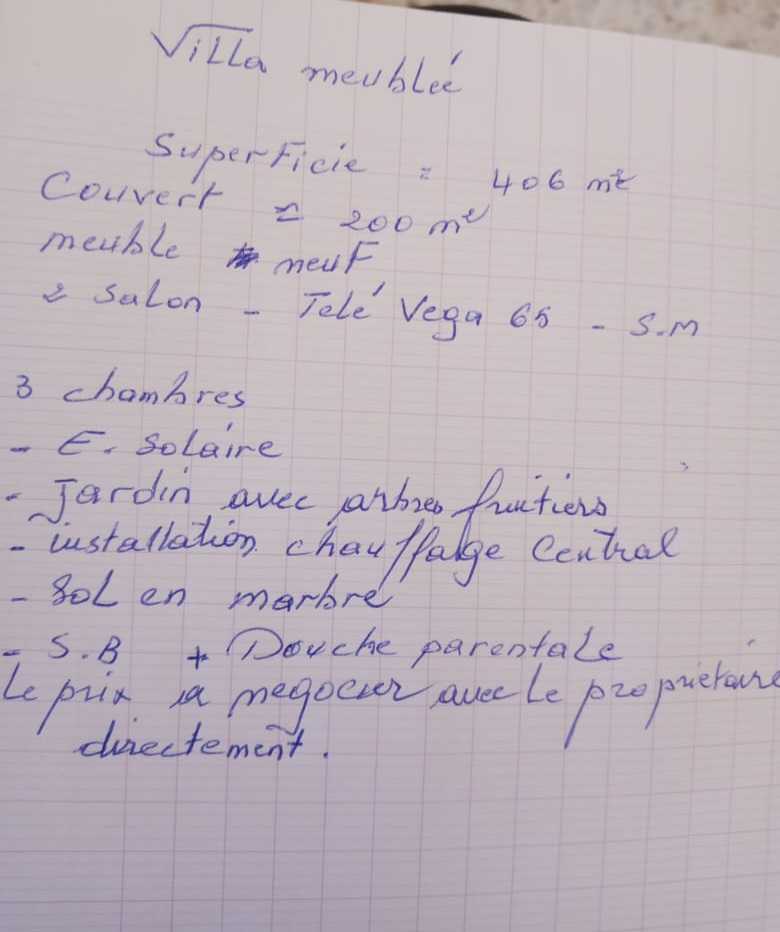 Villa meublée
Superficie = 406 m²
Couvert = 200 m²
meuble neuf
2 Salon - Telé Vega 65 - S.M
3 chambres
- E. Solaire
- Jardin avec arbres fruitiers
- installation chauffage Central
- Sol en marbre
- S.B + Douche parentale
Le prix a negocier avec Le proprietaire
directement.